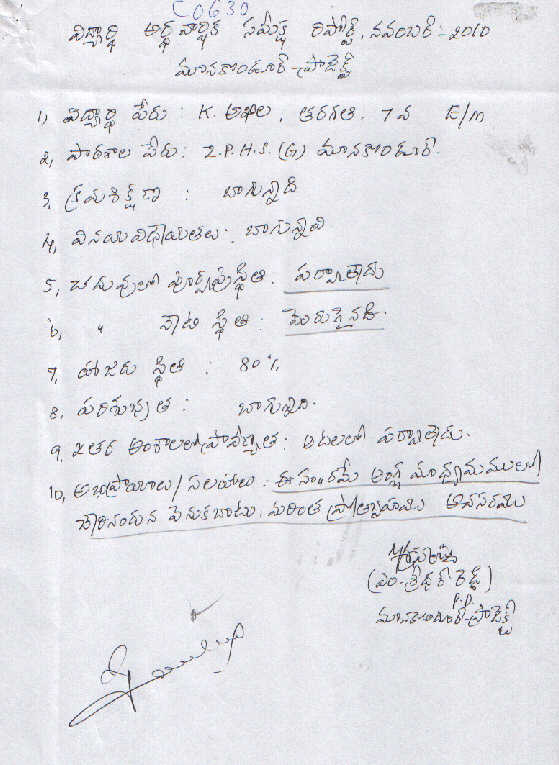 C0630
విద్యార్థి అర్థ వార్షిక సమీక్ష రిపోర్ట్, నవంబర్ - 2010
మానకొండూర్ - ప్రాజెక్ట్
1, విద్యార్థి పేరు : K. అఖిల, తరగతి. 7వ E/m
2, పాఠశాల పేరు: Z.P.H.S. (G) మానకొండూర్.
3, క్రమశిక్షణ : బాగున్నది
4, వినయవిధేయతలు: బాగున్నవి
5, చదువులో పూర్వపు స్థితి.
6, " నేటి స్థితి : మెరుగైనది.
7, హాజరు స్థితి : 80%
8, పరిశుభ్రత : బాగున్నది.
9, ఇతర అంశాలలో ప్రావీణ్యత : ఆటలలో
10, అభిప్రాయాలు/సలహాలు : ఈ సం.రమే ఆంగ్ల మాధ్యమములో
చేరినందున వెనుకబాటు, మరింత ప్రోత్సాహము అవసరము
(ఎం. శ్రీధర్ రెడ్డి)
P.P.
మానకొండూర్ - ప్రాజెక్ట్